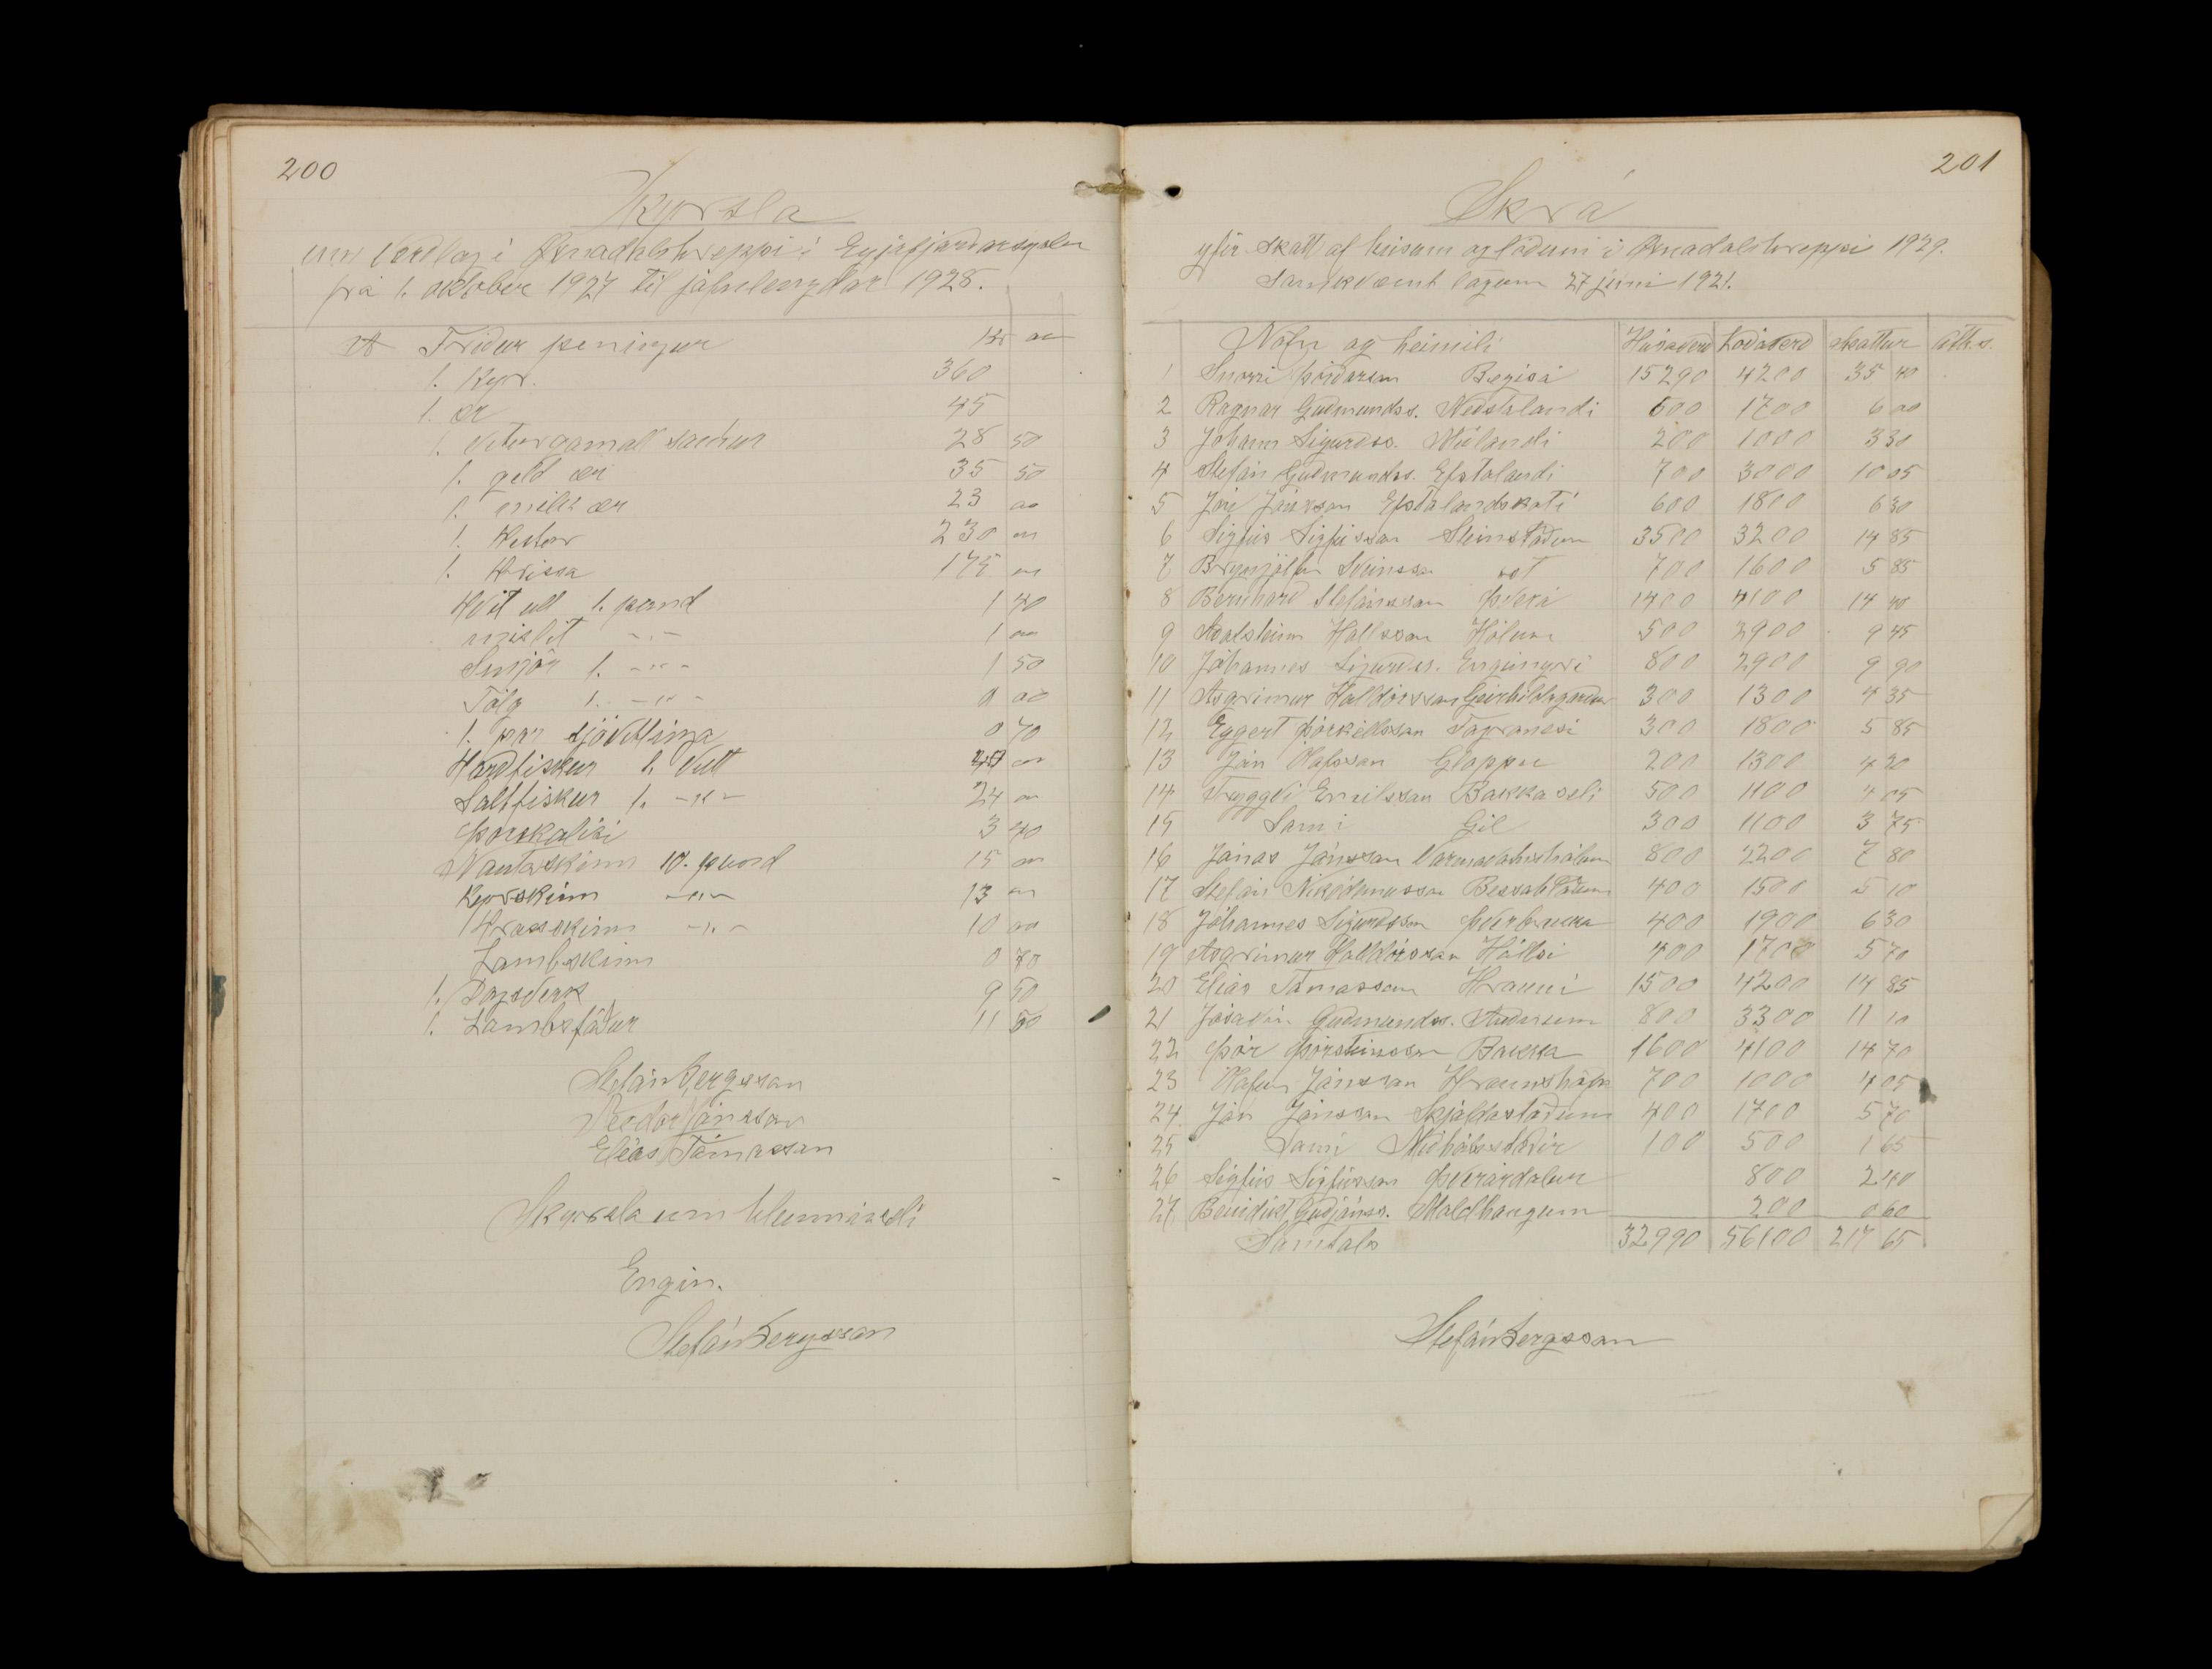 200
Skyrsla
um verdlag í Öxnadalshreppi í Eyjafjardarsyslu
frá 1. oktober 1927 til jafnlengdar 1928.
A Fridur peningur kr au
1. Kyr. 360
1. ær 45
1. veturgamall saudur 28 50
1. geld ær 35 50
1. milk ær 23 00
1. Hestur 230 00
1. Hrissa 175 00
Hvit ull 1. pund 1 40
mislit -"- 1 00
Smjör 1. -"- 1 50
Tólg 1. -"- 0 00
1. par sjóvetlinga 0 70
Hardfiskur 1. vætt 00
Saltfiskur 1. -"- 24 00
Þorskalisi 3 40
Nautskinn 10. pund 15 00
Kyrskinn -"- 13 00
Hrossskinn -"- 10 00
Lambskinn 0 70
1. Dagsverk 9 50
1. Lambsfódur 11 50
Stefán Bergsson
Teodor Jónsson
Elías Tómasson
Skyrsla um hlunnindi
Engin.
Stefán Bergsson
201
Skrá
yfir skatt af húsum og lódum í Öxnadalshreppi 1929.
samkvæmt lögum 27 júni 1921.
Nöfn og heimili Húsaverd Lódaverd Skattur Aths.
1 Snorri Þórdarson Bægisá 15290 4200 35 40
2 Ragnar Gudmundss. Nedstalandi 600 1700 6 00
3 Jóhann Sigurdss. Midlandi 200 1000 3 30
4 Stefán Gudmundss. Efstalandi 700 3000 10 05
5 Jón Jónsson Efstalandskoti 600 1800 6 30
6 Sigfús Sigfússon Steinstödum 3500 3200 14 85
7 Brynjólfur Sveinsson st 700 1600 5 85
8 Bernhard Stefánsson Þverá 1400 4100 14 40
9 Adalsteinn Hallsson Hólum 500 2900 9 45
10 Jóhannes Sigurdss. Engimyri 800 2900 9 90
11 Asgrimur Halldórsson Geirhildargardar 300 1300 4 35
12 Eggert Þorkelsson Fagranesi 300 1800 5 85
13 Jón Ólafsson Gloppu 200 1300 4 20
14 Tryggvi Emilsson Bakkaseli 500 1100 4 05
15 Sami Gil 300 1100 3 75
16 Jónas Jónsson Varmavatnshólum 800 2200 7 80
17 Stefán Nikódemusson Bessahlödum 400 1500 5 10
18 Jóhannes Sigurdsson Þverbrekka 400 1900 6 30
19 Asgrimur Halldórsson Hálsi 400 1700 5 70
20 Elías Tómasson Hrauni 1500 4200 14 85
21 Jósavin Gudmundss. Audnum 800 3300 11 10
22 Þór Þorsteinsson Bakka 1600 4100 14 70
23 Ólafur Jónsson Hraunshöfn 700 1000 4 05
24. Jón Jónsson Skjaldastödum 400 1700 5 70
25 Sami 100 500 1 65
26 Sigfús Sigfússon Þverárdalur 800 2 40
27. Benidikt Gudjónss. Moldhaugum 200 0 60
Samtals 32990 56100 217 65
Stefán Bergsson